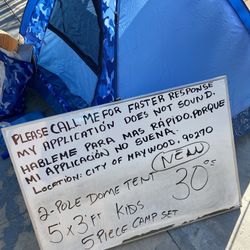 PLEASE CALL ME FOR FASTER RESPONSE
MY APPLICATION DOES NOT SOUND.
HABLEME PARA MAS RÁPIDO, PORQUE
MI APLICACIÓN NO SUENA.
LOCATION: CITY OF MAYWOOD, 90270
NEW
2-POLE DOME TENT 30⁰⁰
5 x 3 FT KIDS
5 PIECE CAMP SET